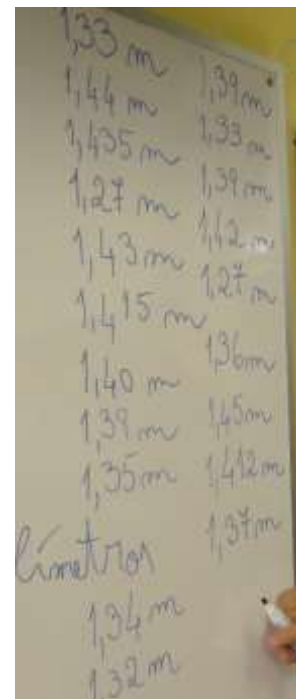 1,33 m
1,44 m
1,435 m
1,27 m
1,43 m
1,415 m
1,40 m
1,39 m
1,35 m
límetros
1,34 m
1,32 m
1,39 m
1,33 m
1,39 m
1,42 m
1,27 m
1,36 m
1,45 m
1,412 m
1,37 m